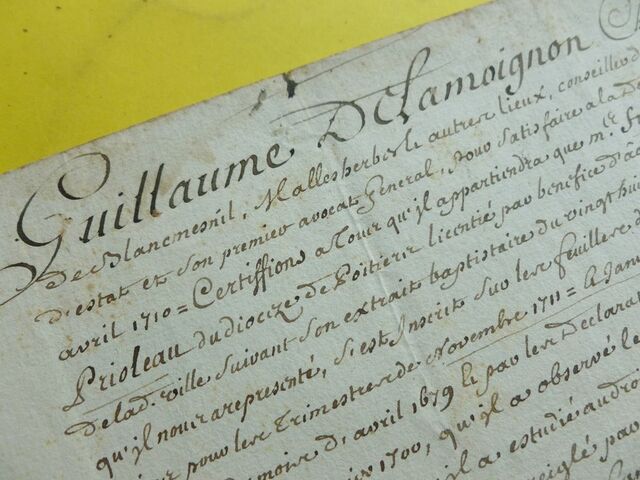 Guillaume DeLamoignon
de Blancmesnil, Mallesherbes & autres lieux, conseiller d
d'estat et son premier avocat General, pour satisfaire a la De
avril 1710 = Certiffions a tous qu'il appartiendra que Mr. Fr
Prioleau du dioceze de Poitiers licentié par benefice d'â
de lad. ville suivant son extrait baptistaire du vingt hui
qu'il nous a representé, s'est Inscrit sur les feuilles
pour les Trimestres de Novembre 1711 = & Janv
d'avril 1679 & par les Declarat
1700, qu'il a observé le
il a estudié au droi
par